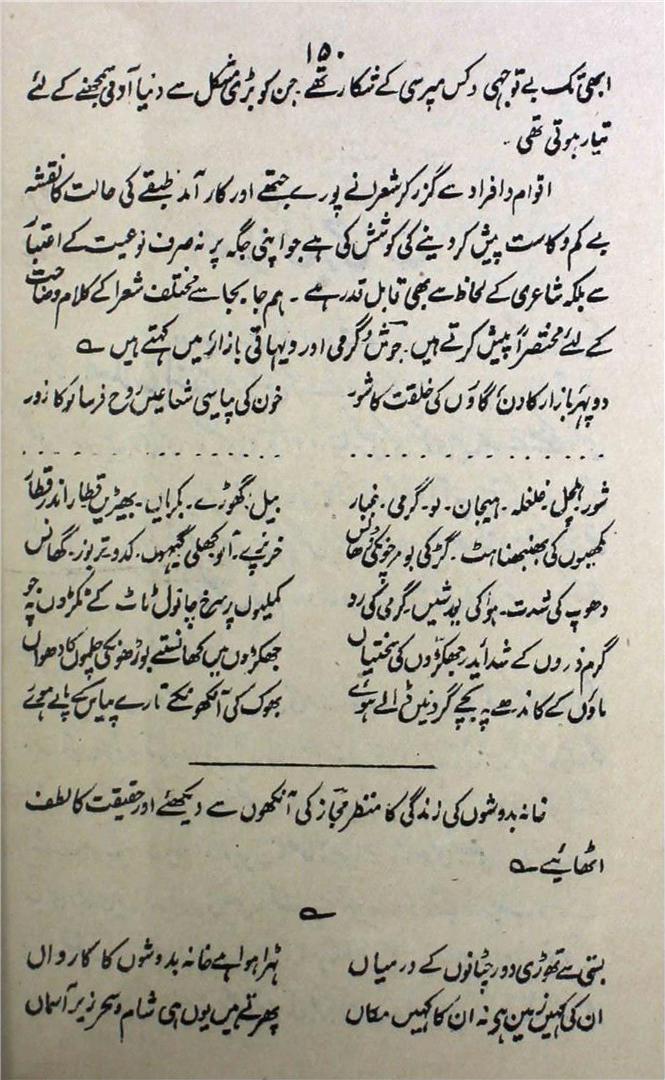 ۱۵۰
ابھی تک بے توجہی دکس مپرسی کے شکار تھے۔ جن کو بڑی مشکل سے دنیا آدمی سمجھنے کے لئے
تیار ہوتی تھی۔
اقوام دافراد سے گزر کر شعرا نے پورے جتھے اور کار آمد طبقے کی حالت کا نقشہ
بے کم وکاست پیش کر دینے کی کوشش کی ہے جو اپنی جگہ پر نہ صرف نوعیت کے اعتبار
سے بلکہ شاعری کے لحاظ سے بھی قابل قدر ہے۔ ہم جا بجا سے مختلف شعرا کے کلام وضاحت
کے لئے مختصراً پیش کرتے ہیں۔ جوش گرمی اور دیہاتی بازار میں کہتے ہیں ؎
دوپہر بازار کا دن گاؤں کی خلقت کا شور خون کی پیاسی شعاعیں روح فرسا لو کا زور
. . . . . . . . . . . . . . . . . . . . . . . . . . . .
شور ہلچل۔ غلغلہ۔ ہیجان۔ لو۔ گرمی۔ غبار بیل۔ گھوڑے۔ بکریاں۔ بھیڑیں قطار اندر قطار
مکھیوں کی بھنبھناہٹ۔ گڑ کی بو مرچوں کی دھانس خربزے۔ آلو کھلی گیہوں۔ کدو تربوز۔ گھانس
دھوپ کی شدت۔ ہوا کی یورشیں۔ گرمی کی رو کملیوں پر سرخ چانول ٹاٹ کے ٹکڑوں پہ جو
گرم ذروں کے شدائد۔ جھکڑوں کی سختیاں جھکڑوں میں کھانستے بوڑھوں کی چلموں کا دھواں
ماؤں کے کاندھے پہ بچے گردنیں ڈالے ہوئے بھوک کی آنکھوں کے تارے پیاس کے پالے ہوئے
خانہ بدوشوں کی زندگی کا منظر مجاز کی آنکھوں سے دیکھئے اور حقیقت کا لطف
اٹھائیے ؎
؎
بستی سے تھوڑی دور چٹانوں کے درمیاں ٹہرا ہوا ہے خانہ بدوشوں کا کارواں
ان کی کہیں زمین ہے نہ ان کا کہیں مکاں پھرتے ہیں یوں ہی شام وسحر زیر آسماں